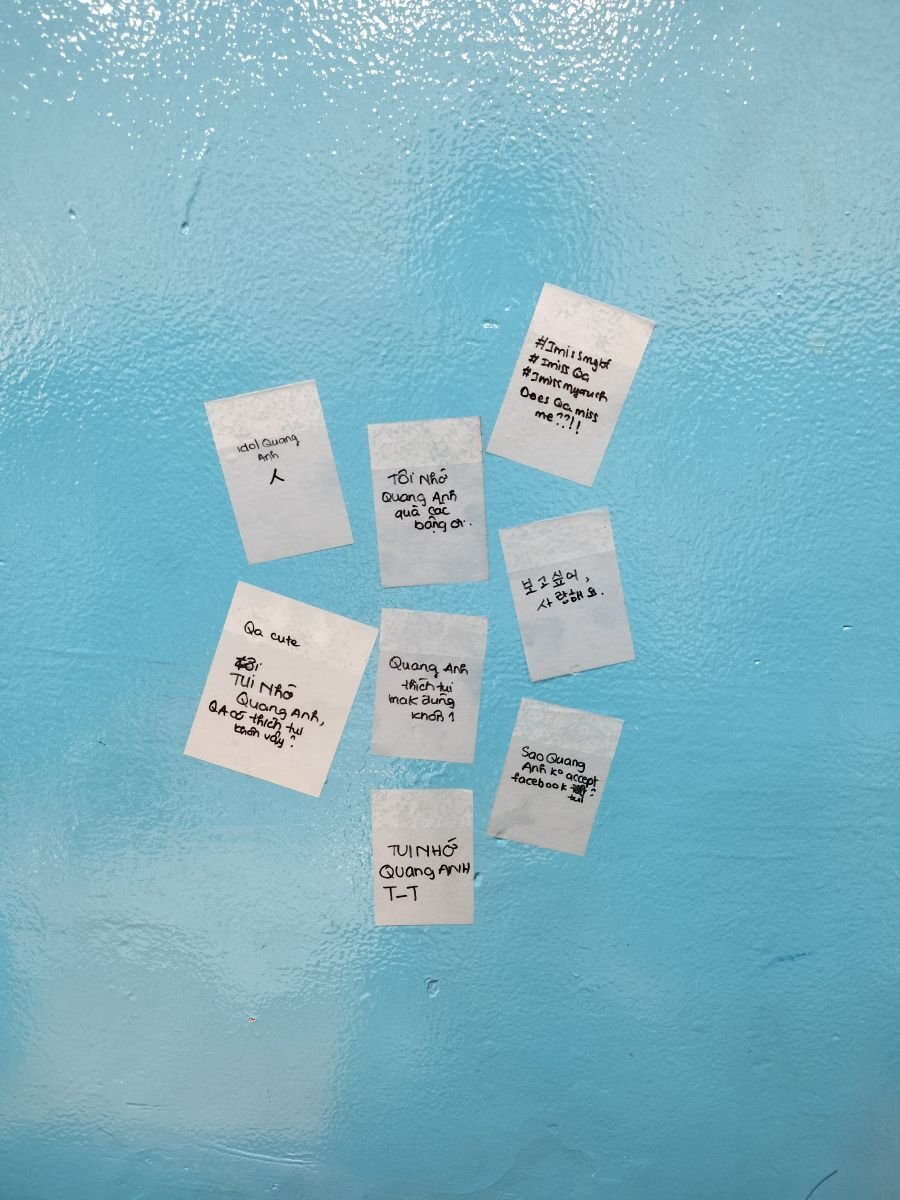 #Imissmybf
#Imiss Qa
#Imissmycruch
Does Qa miss
me??!!
idol Quang
Anh
人
Tôi Nhớ
Quang Anh
quá các
bạng ơi.
보고싶어,
사랑해요.
Qa cute
Tui Nhớ
Quang Anh,
QA có thích tui
khôn vậy?
Quang Anh
thích tui
mak đung
khôn?
Sao Quang
Anh ko accept
facebook
tui?
TUI NHỚ
Quang ANH
T_T